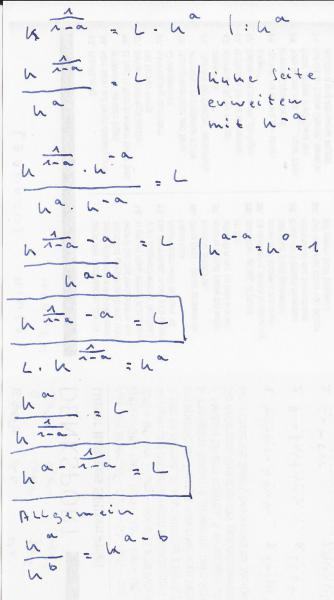 k^(1/(1-a)) = L · k^a | : k^a
k^(1/(1-a)) / k^a = L | linke Seite
erweiten
mit k^-a
k^(1/(1-a)) · k^-a / k^a · k^-a = L
k^(1/(1-a) - a) / k^(a-a) = L | k^(a-a) = k^0 = 1
k^(1/(1-a) - a) = L
L · k^(1/(1-a)) = k^a
k^a / k^(1/(1-a)) = L
k^(a - 1/(1-a)) = L
Allgemein
k^a / k^b = k^(a-b)